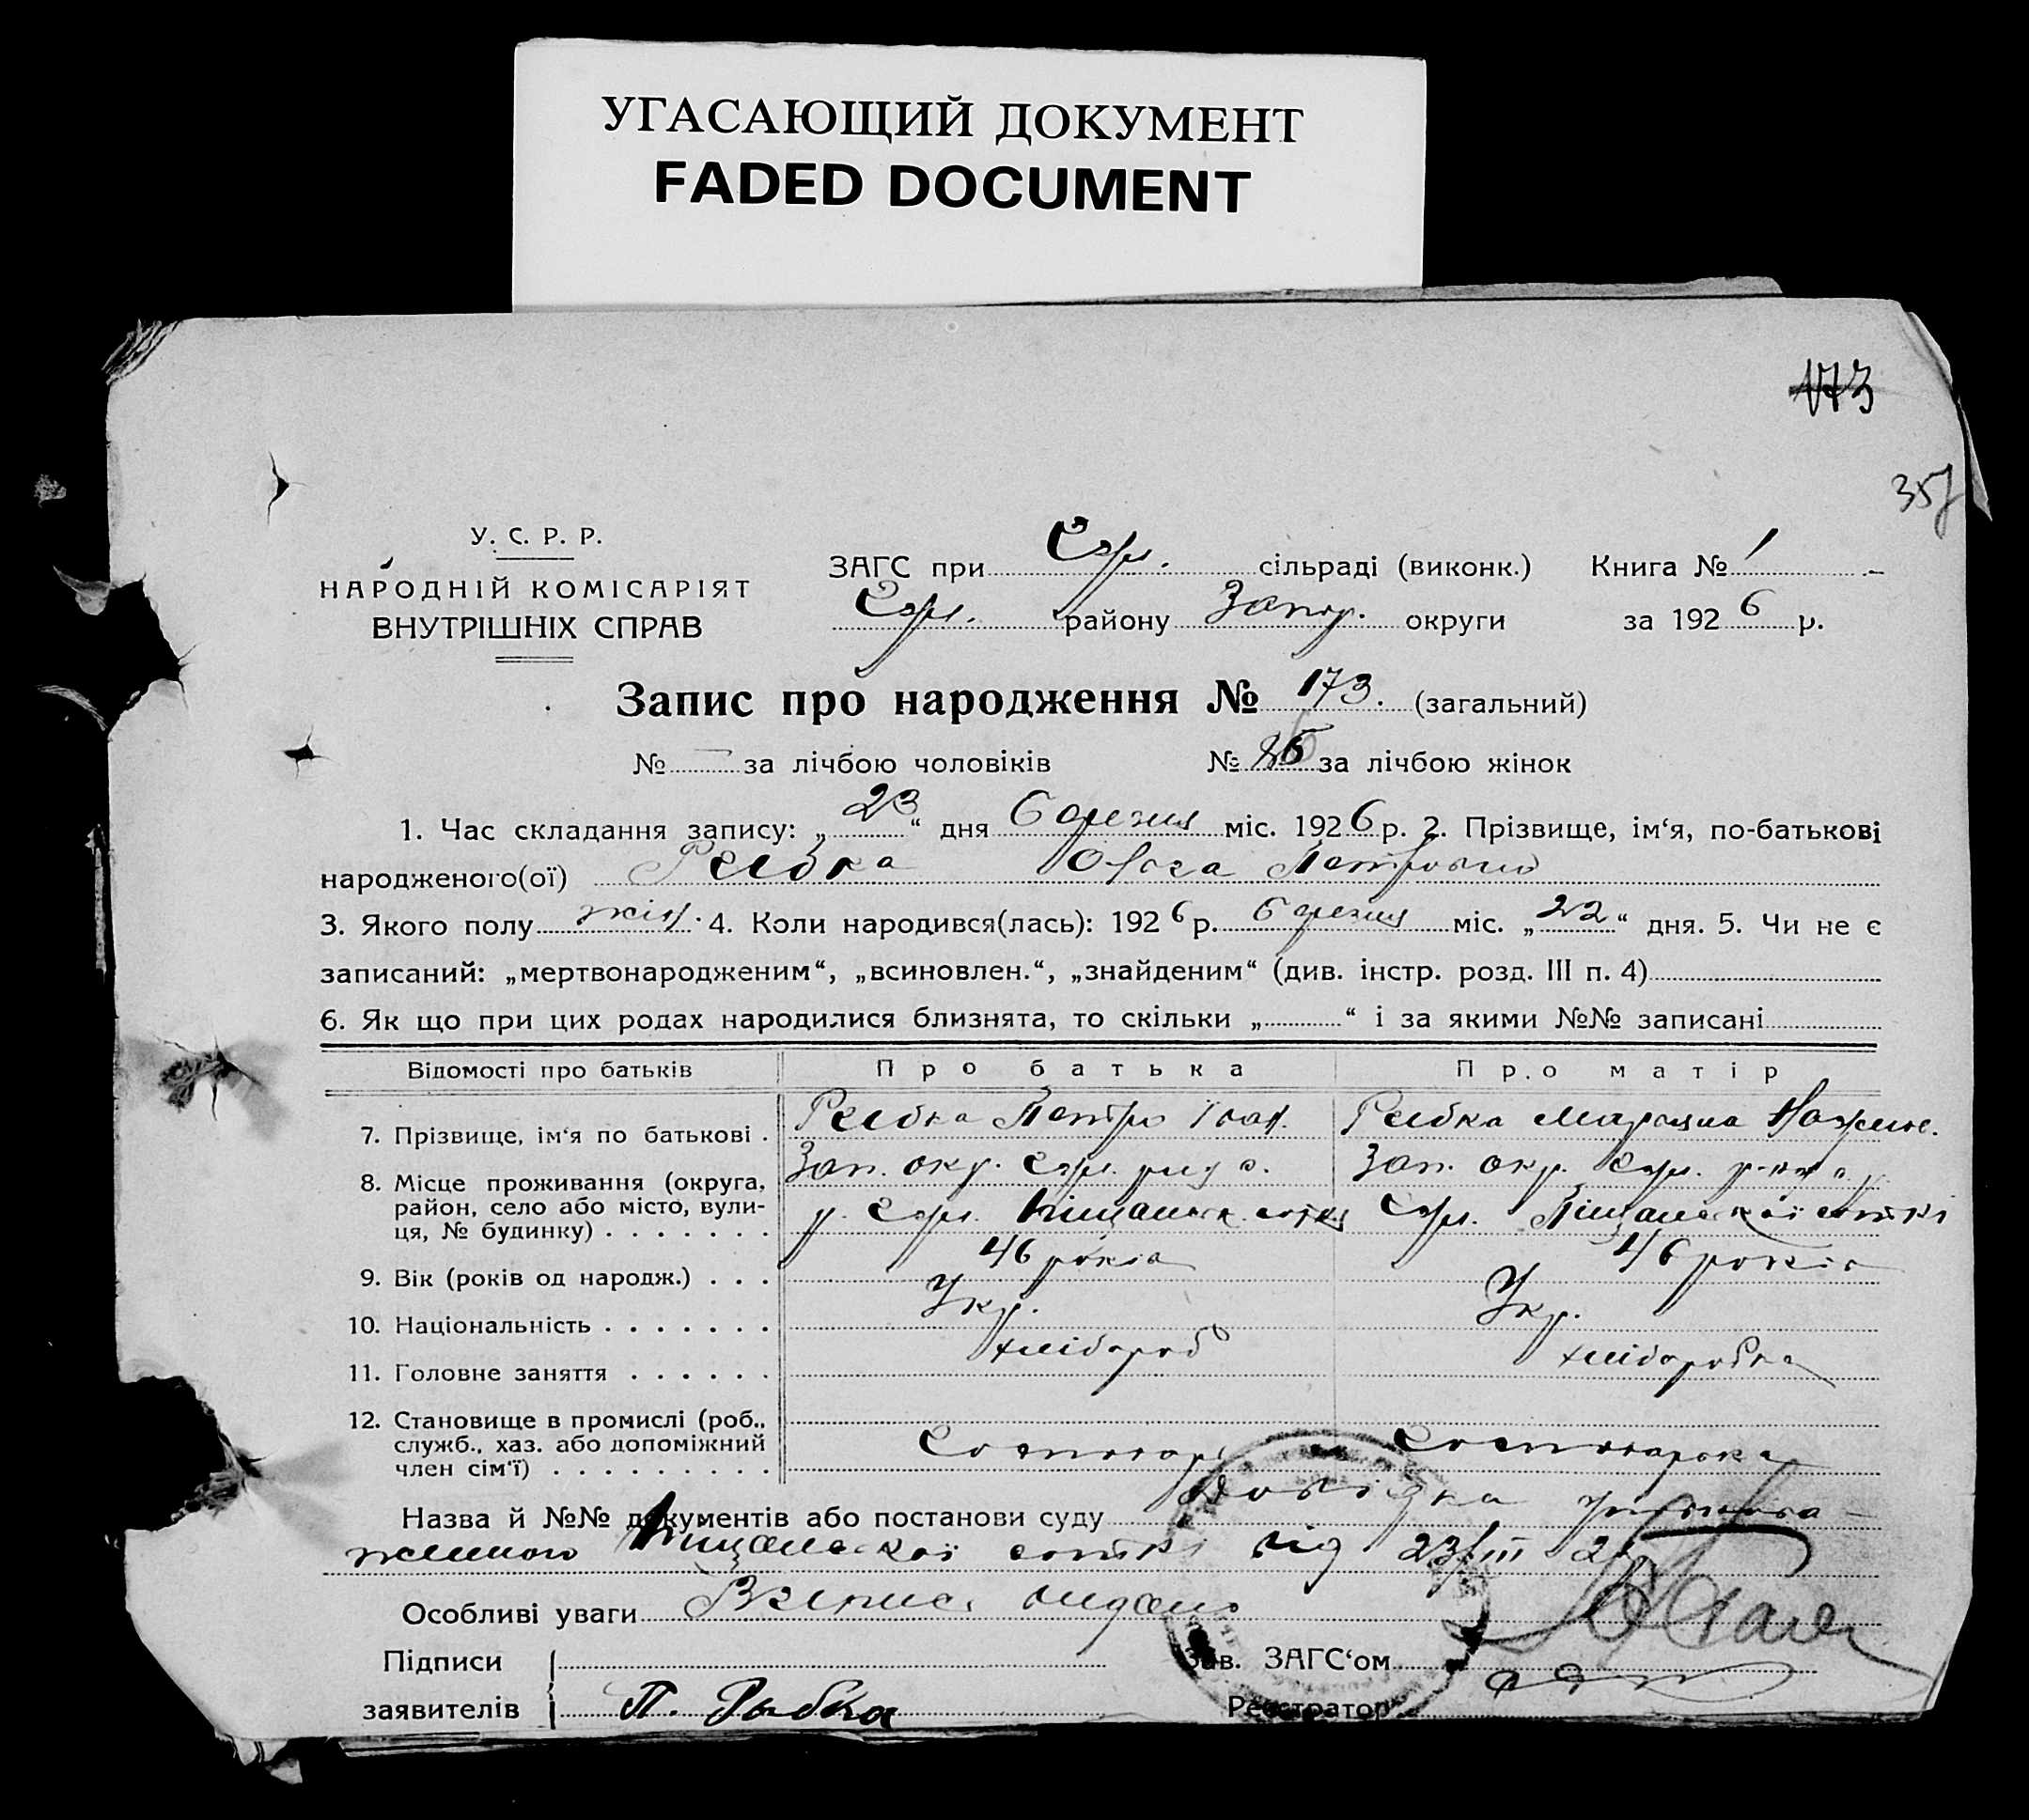 УГАСАЮЩИЙ ДОКУМЕНТ
FADED DOCUMENT
173
357
У. С. Р. Р.
НАРОДНІЙ КОМІСАРІЯТ
ВНУТРІШНІХ СПРАВ
ЗАГС при сільраді (виконк.) Книга № 1
району Запор. округи за 1926 р.
Запис про народження № 173. (загальний)
№ — за лічбою чоловіків № за лічбою жінок
1. Час складання запису: „23“ дня березня міс. 1926 р. 2. Прізвище, ім‘я, по-батькові
народженого(ої) Рибка Ольга Петровна
3. Якого полу жін. 4. Коли народився(лась): 1926 р. березня міс. „22“ дня. 5. Чи не є
записаний: „мертвонародженим“, „всиновлен.“, „знайденим“ (див. інстр. розд. III п. 4)
6. Як що при цих родах народилися близнята, то скільки „ “ і за якими №№ записані
Відомості про батьків Про батька Про матір
7. Прізвище, ім‘я по батькові . Рибка Петро Іван. Рибка
8. Місце проживання (округа, Зап. окр. Зап. окр.
район, село або місто, вули-
ця, № будинку)
9. Вік (років од народж.) . . . 46 років 46 років
10. Національність . . . . . . . Укр. Укр.
11. Головне заняття . . . . . . хлібороб хліборобка
12. Становище в промислі (роб.,
служб., хаз. або допоміжний
член сім‘ї) . . . . . . . . .
Назва й №№ документів або постанови суду Довідка
сотні від 23/III 26
Особливі уваги Випис видано
Підписи Зав. ЗАГС‘ом
заявителів П. Рыбка Реєстратор